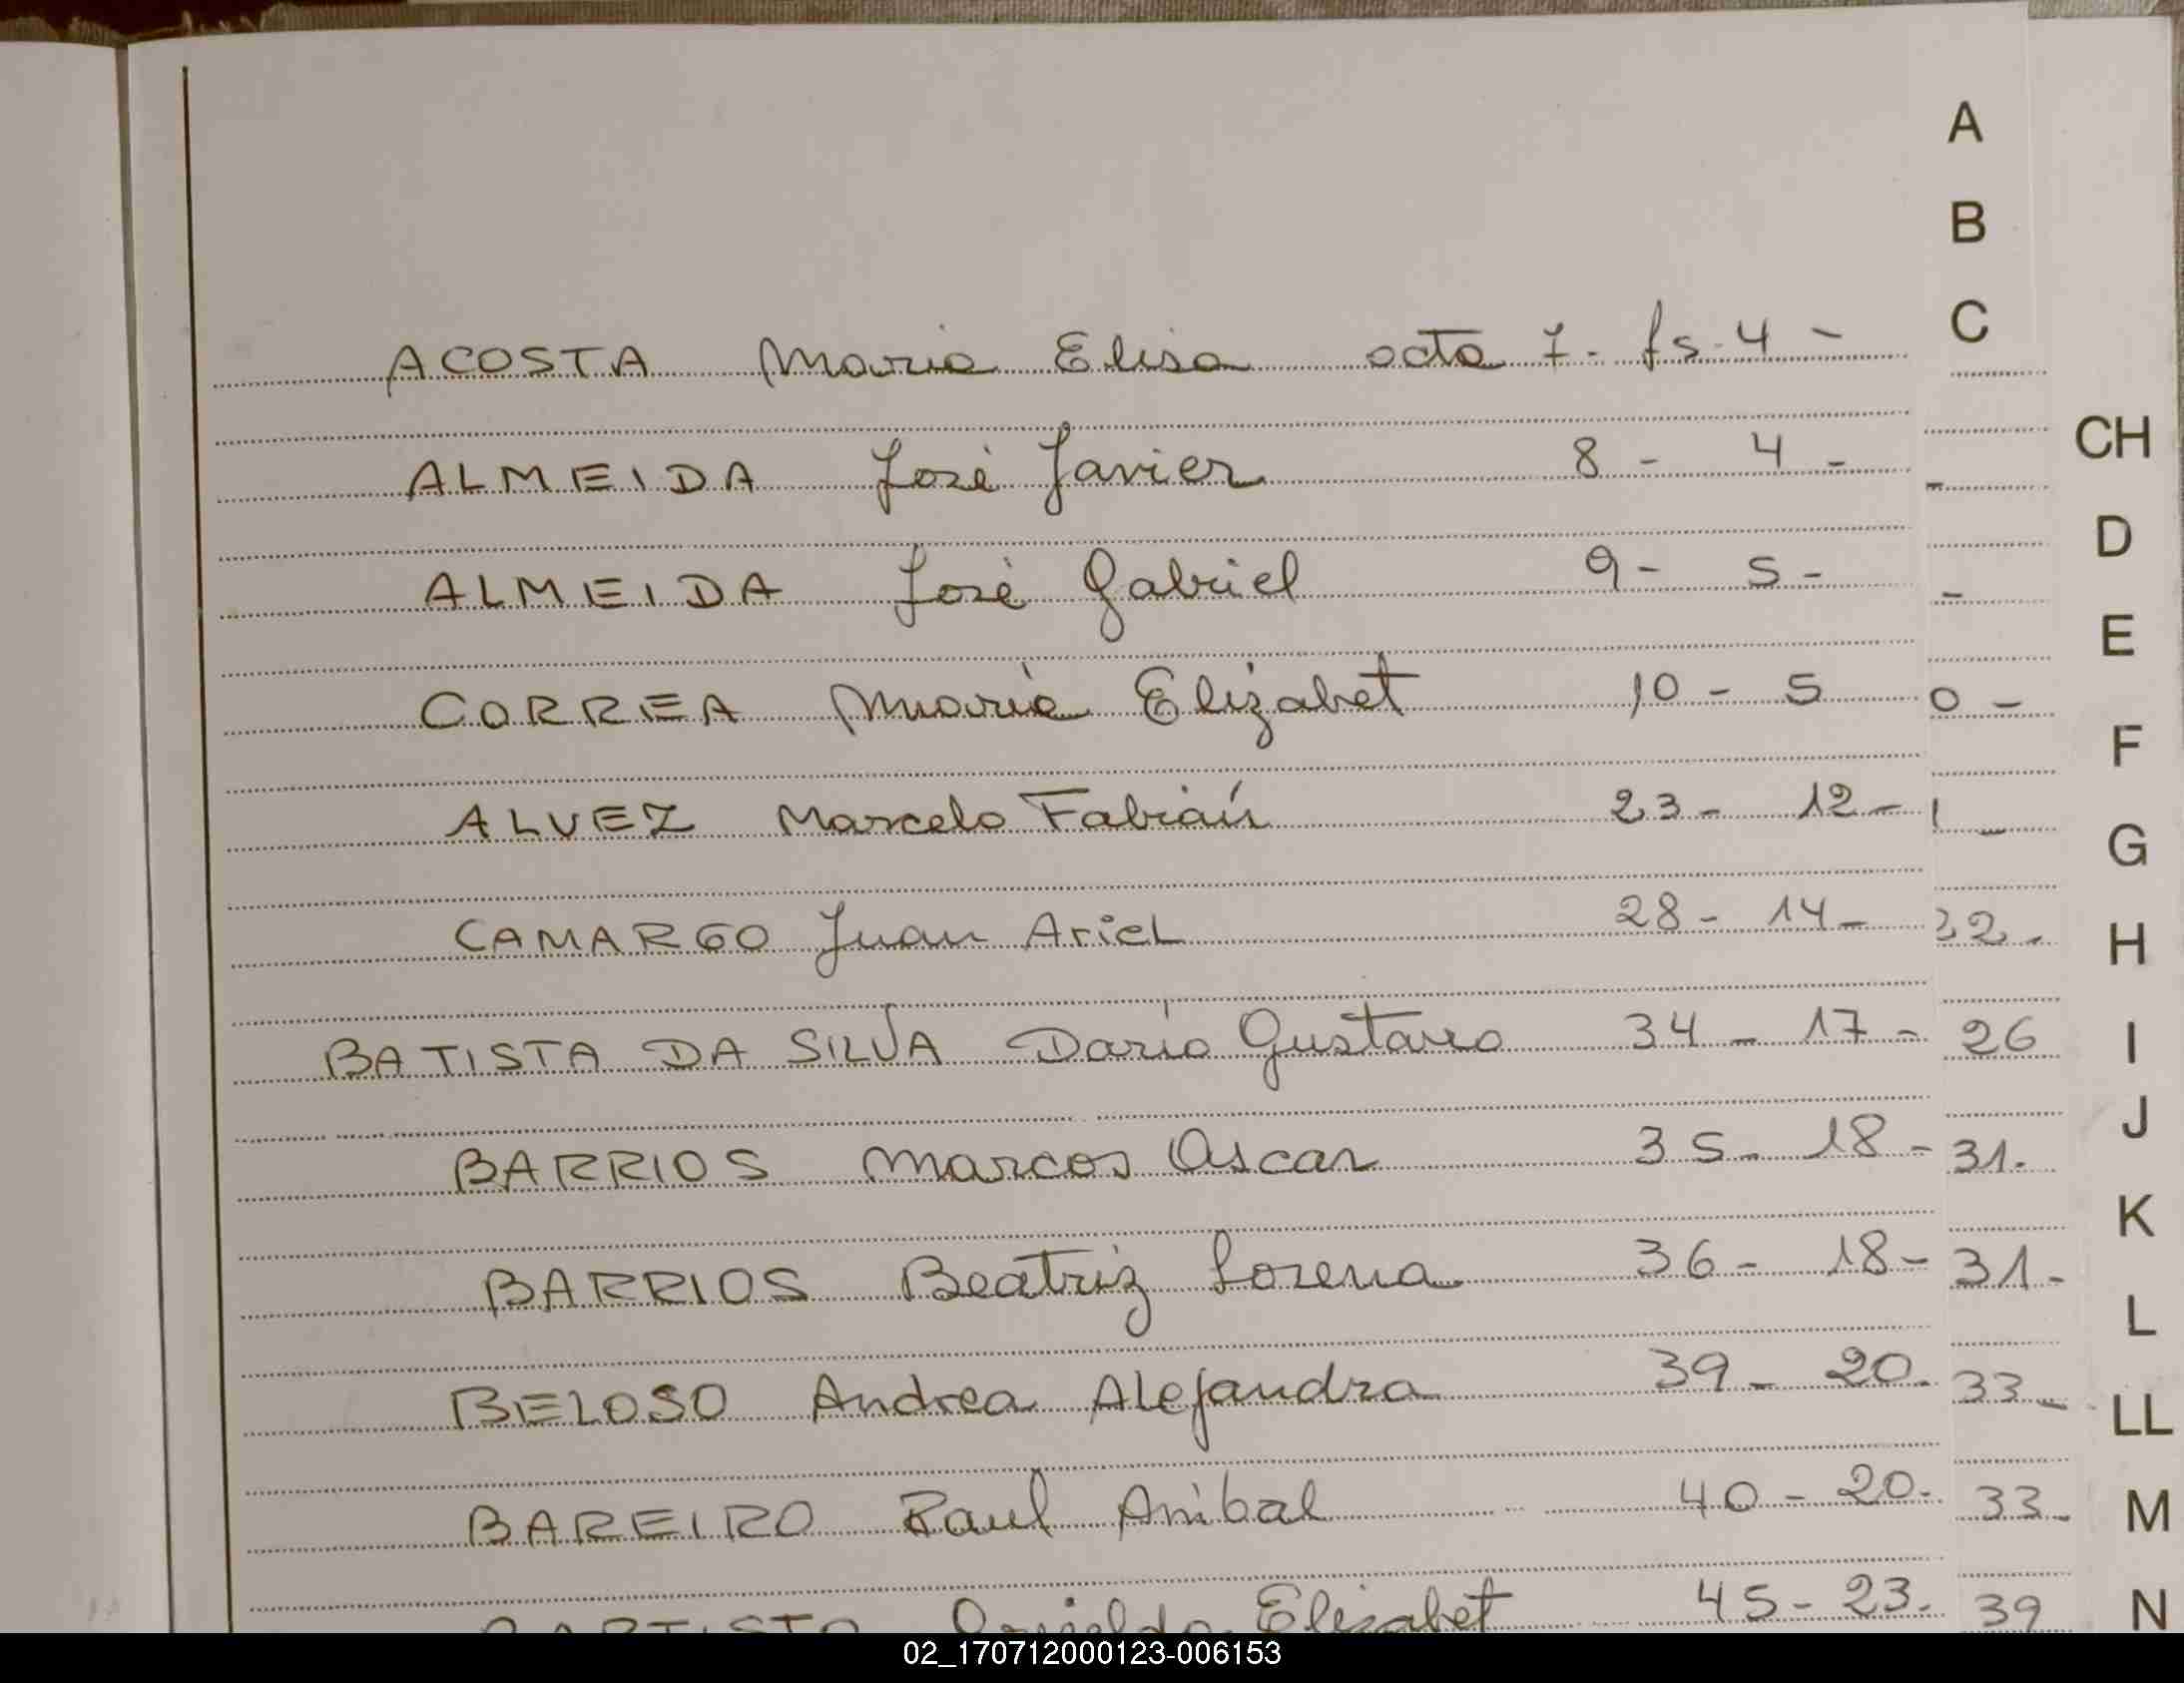 A
B
C
ACOSTA Maria Elisa acta 7- fs. 4 -
CH
ALMEIDA José Javier 8 - 4 - -
D
ALMEIDA José Gabriel 9 - 5 - -
E
CORREA Maria Elizabet 10 - 5 0 -
F
ALVEZ Marcelo Fabián 23 - 12 - 1 -
G
CAMARGO Juan Ariel 28 - 14 - 22 -
H
BATISTA DA SILVA Darío Gustavo 34 - 17 - 26
I
J
BARRIOS Marcos Oscar 35 - 18 - 31.
K
BARRIOS Beatriz Lorena 36 - 18 - 31 -
L
BELOSO Andrea Alejandra 39 - 20. 33 -
LL
BAREIRO Raul Anibal 40 - 20. 33 -
M
Elizabet 45 - 23. 39
N
02_170712000123-006153